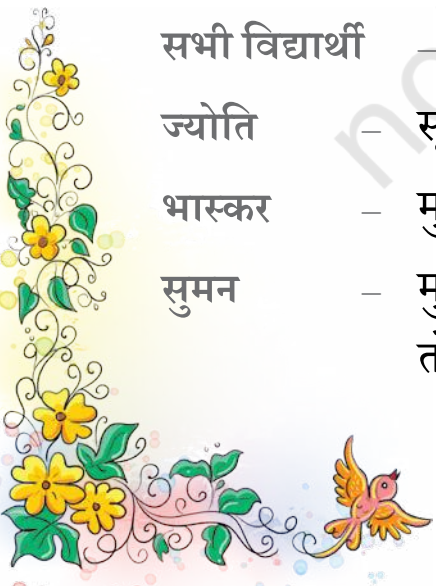 सभी विद्यार्थी –
ज्योति –
भास्कर –
सुमन –